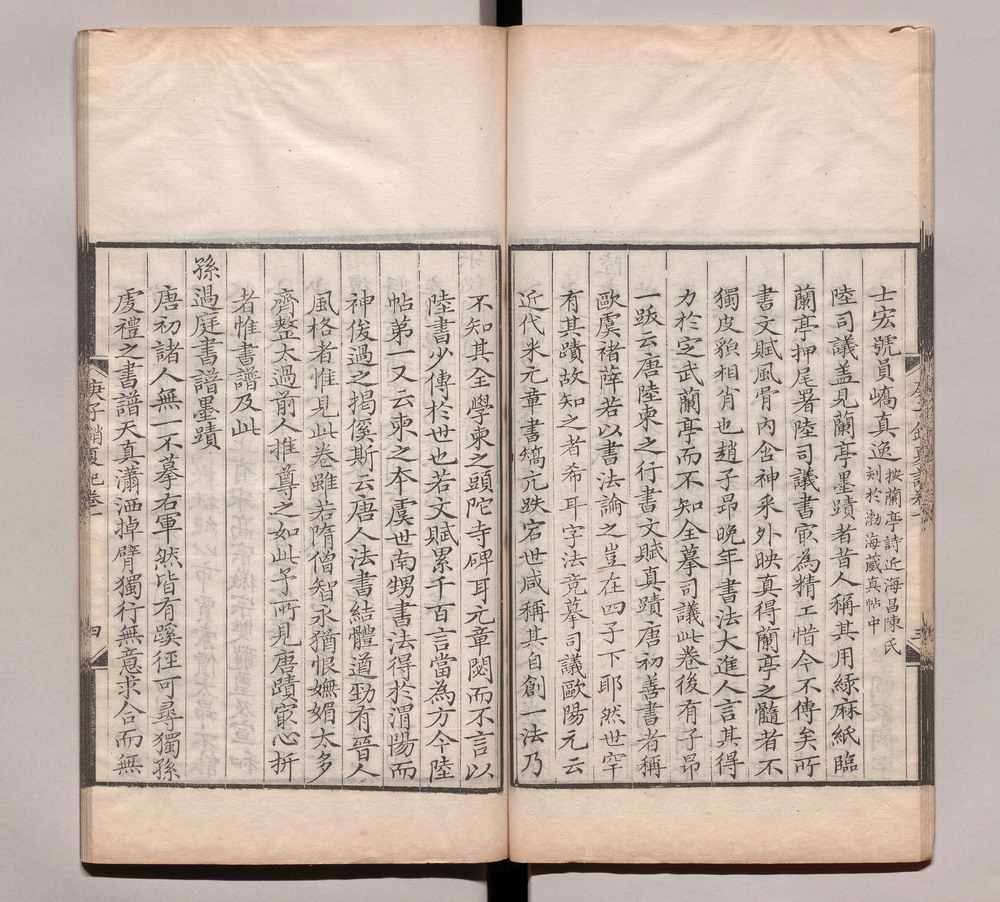 士宏號員嶠真逸
按蘭亭詩近海昌陳氏
刻於渤海藏真帖中
陸司議蓋見蘭亭墨蹟者昔人稱其用綠麻紙臨
蘭亭押尾署陸司議書㝡為精工惜今不傳矣所
書文賦風骨內含神采外映真得蘭亭之髓者不
獨皮貌相肖也趙子昂晚年書法大進人言其得
力於定武蘭亭而不知全摹司議此卷後有子昂
一跋云唐陸柬之行書文賦真蹟唐初善書者稱
歐虞褚薛若以書法論之豈在四子下耶然世罕
有其蹟故知之者希耳字法竟摹司議歐陽元云
近代米元章書矯亢跌宕世咸稱其自創一法乃
不知其全學柬之頭陀寺碑耳元章閟而不言以
陸書少傳於世也若文賦累千百言當為方今陸
帖第一又云柬之本虞世南甥書法得於渭陽而
神俊過之揭傒斯云唐人法書結體遒勁有晉人
風格者惟見此卷雖若隋僧智永猶恨嫵媚太多
齊整太過前人推尊之如此予所見唐蹟㝡心折
者惟書譜及此
孫過庭書譜墨蹟
唐初諸人無一不摹右軍然皆有蹊徑可尋獨孫
虔禮之書譜天真瀟洒掉臂獨行無意求合而無
庚子銷夏記卷一
四